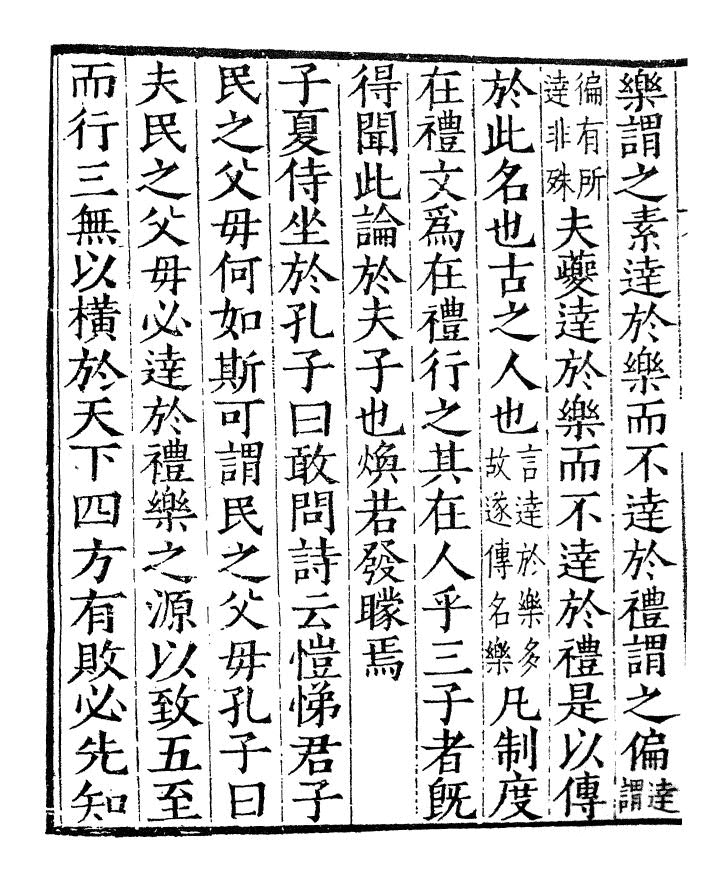 樂謂之素達於樂而不達於禮謂之偏達謂
徧有所達非殊夫夔達於樂而不達於禮是以傳
於此名也古之人也言達於樂多故遂傳名樂凡制度
在禮文爲在禮行之其在人乎三子者旣
得聞此論於夫子也煥若發矇焉
子夏侍坐於孔子曰敢問詩云愷悌君子
民之父毋何如斯可謂民之父毋孔子曰
夫民之父毋必達於禮樂之源以致五至
而行三無以橫於天下四方有敗必先知